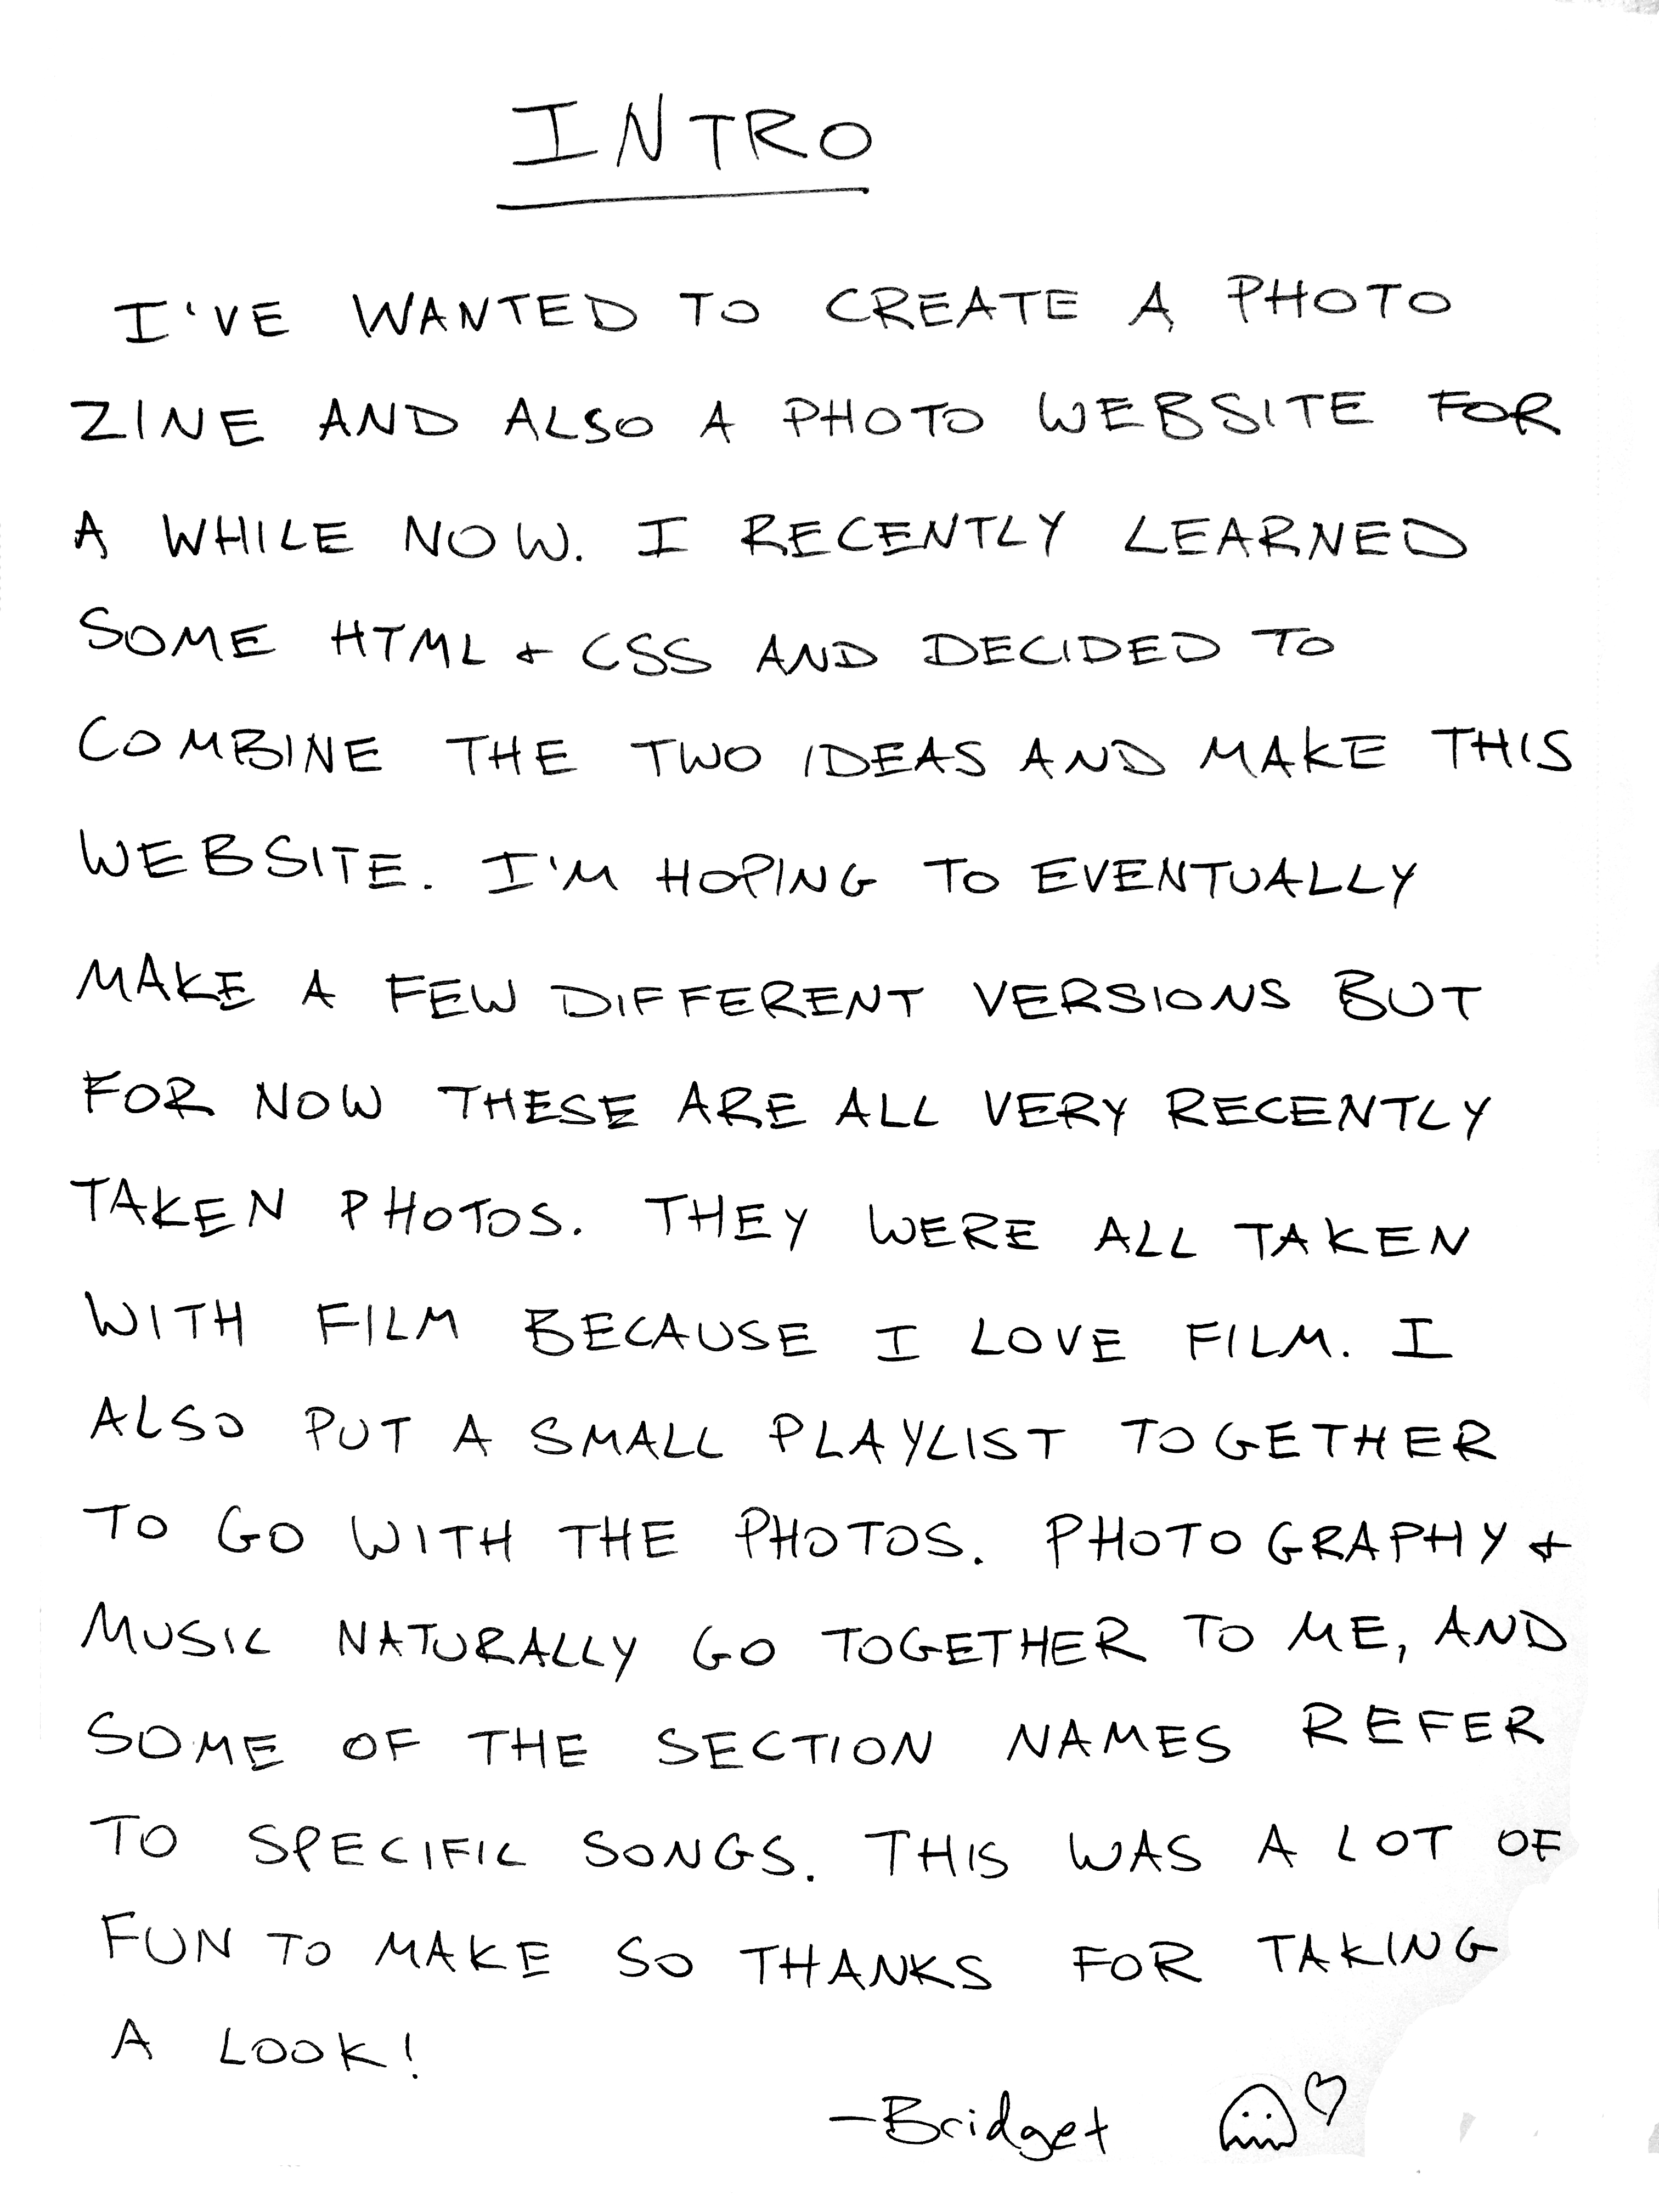 INTRO
I'VE WANTED TO CREATE A PHOTO
ZINE AND ALSO A PHOTO WEBSITE FOR
A WHILE NOW. I RECENTLY LEARNED
SOME HTML & CSS AND DECIDED TO
COMBINE THE TWO IDEAS AND MAKE THIS
WEBSITE. I'M HOPING TO EVENTUALLY
MAKE A FEW DIFFERENT VERSIONS BUT
FOR NOW THESE ARE ALL VERY RECENTLY
TAKEN PHOTOS. THEY WERE ALL TAKEN
WITH FILM BECAUSE I LOVE FILM. I
ALSO PUT A SMALL PLAYLIST TOGETHER
TO GO WITH THE PHOTOS. PHOTOGRAPHY &
MUSIC NATURALLY GO TOGETHER TO ME, AND
SOME OF THE SECTION NAMES REFER
TO SPECIFIC SONGS. THIS WAS A LOT OF
FUN TO MAKE SO THANKS FOR TAKING
A LOOK!
—Bridget